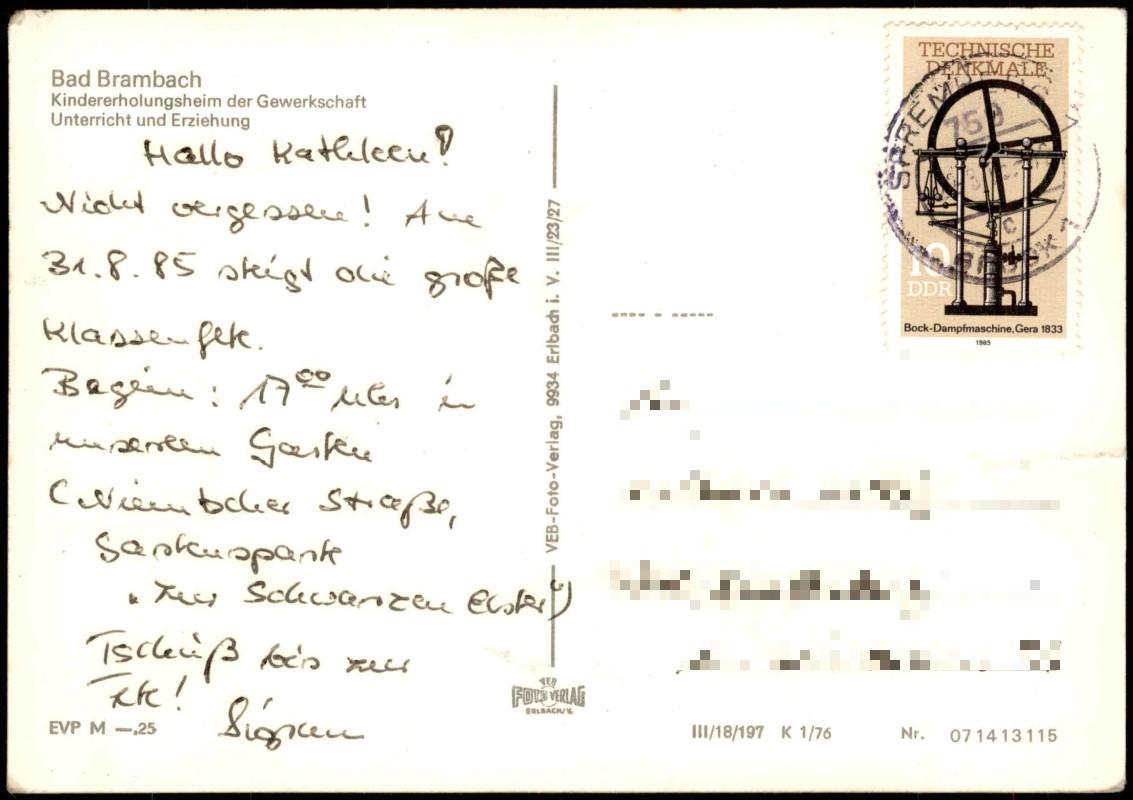 Bad Brambach
Kindererholungsheim der Gewerkschaft
Unterricht und Erziehung
Hallo Kathleen!
Nicht vergessen! Am
31.8.85 steigt die große
Klassenfete.
Beginn: 17⁰⁰ Uhr in
unserem Garten
(Niemtscher Straße,
Gartensparte
"Zur Schwarzen Elster")
Tschüß bis zur
Fete!
EVP M —.25
VEB-Foto-Verlag, 9934 Erlbach i. V. III/23/27
VEB
FOTO VERLAG
ERLBACH/V.
TECHNISCHE
DENKMALE
10
DDR
Bock-Dampfmaschine, Gera 1833
1985
759
c
III/18/197 K 1/76 Nr. 071413115